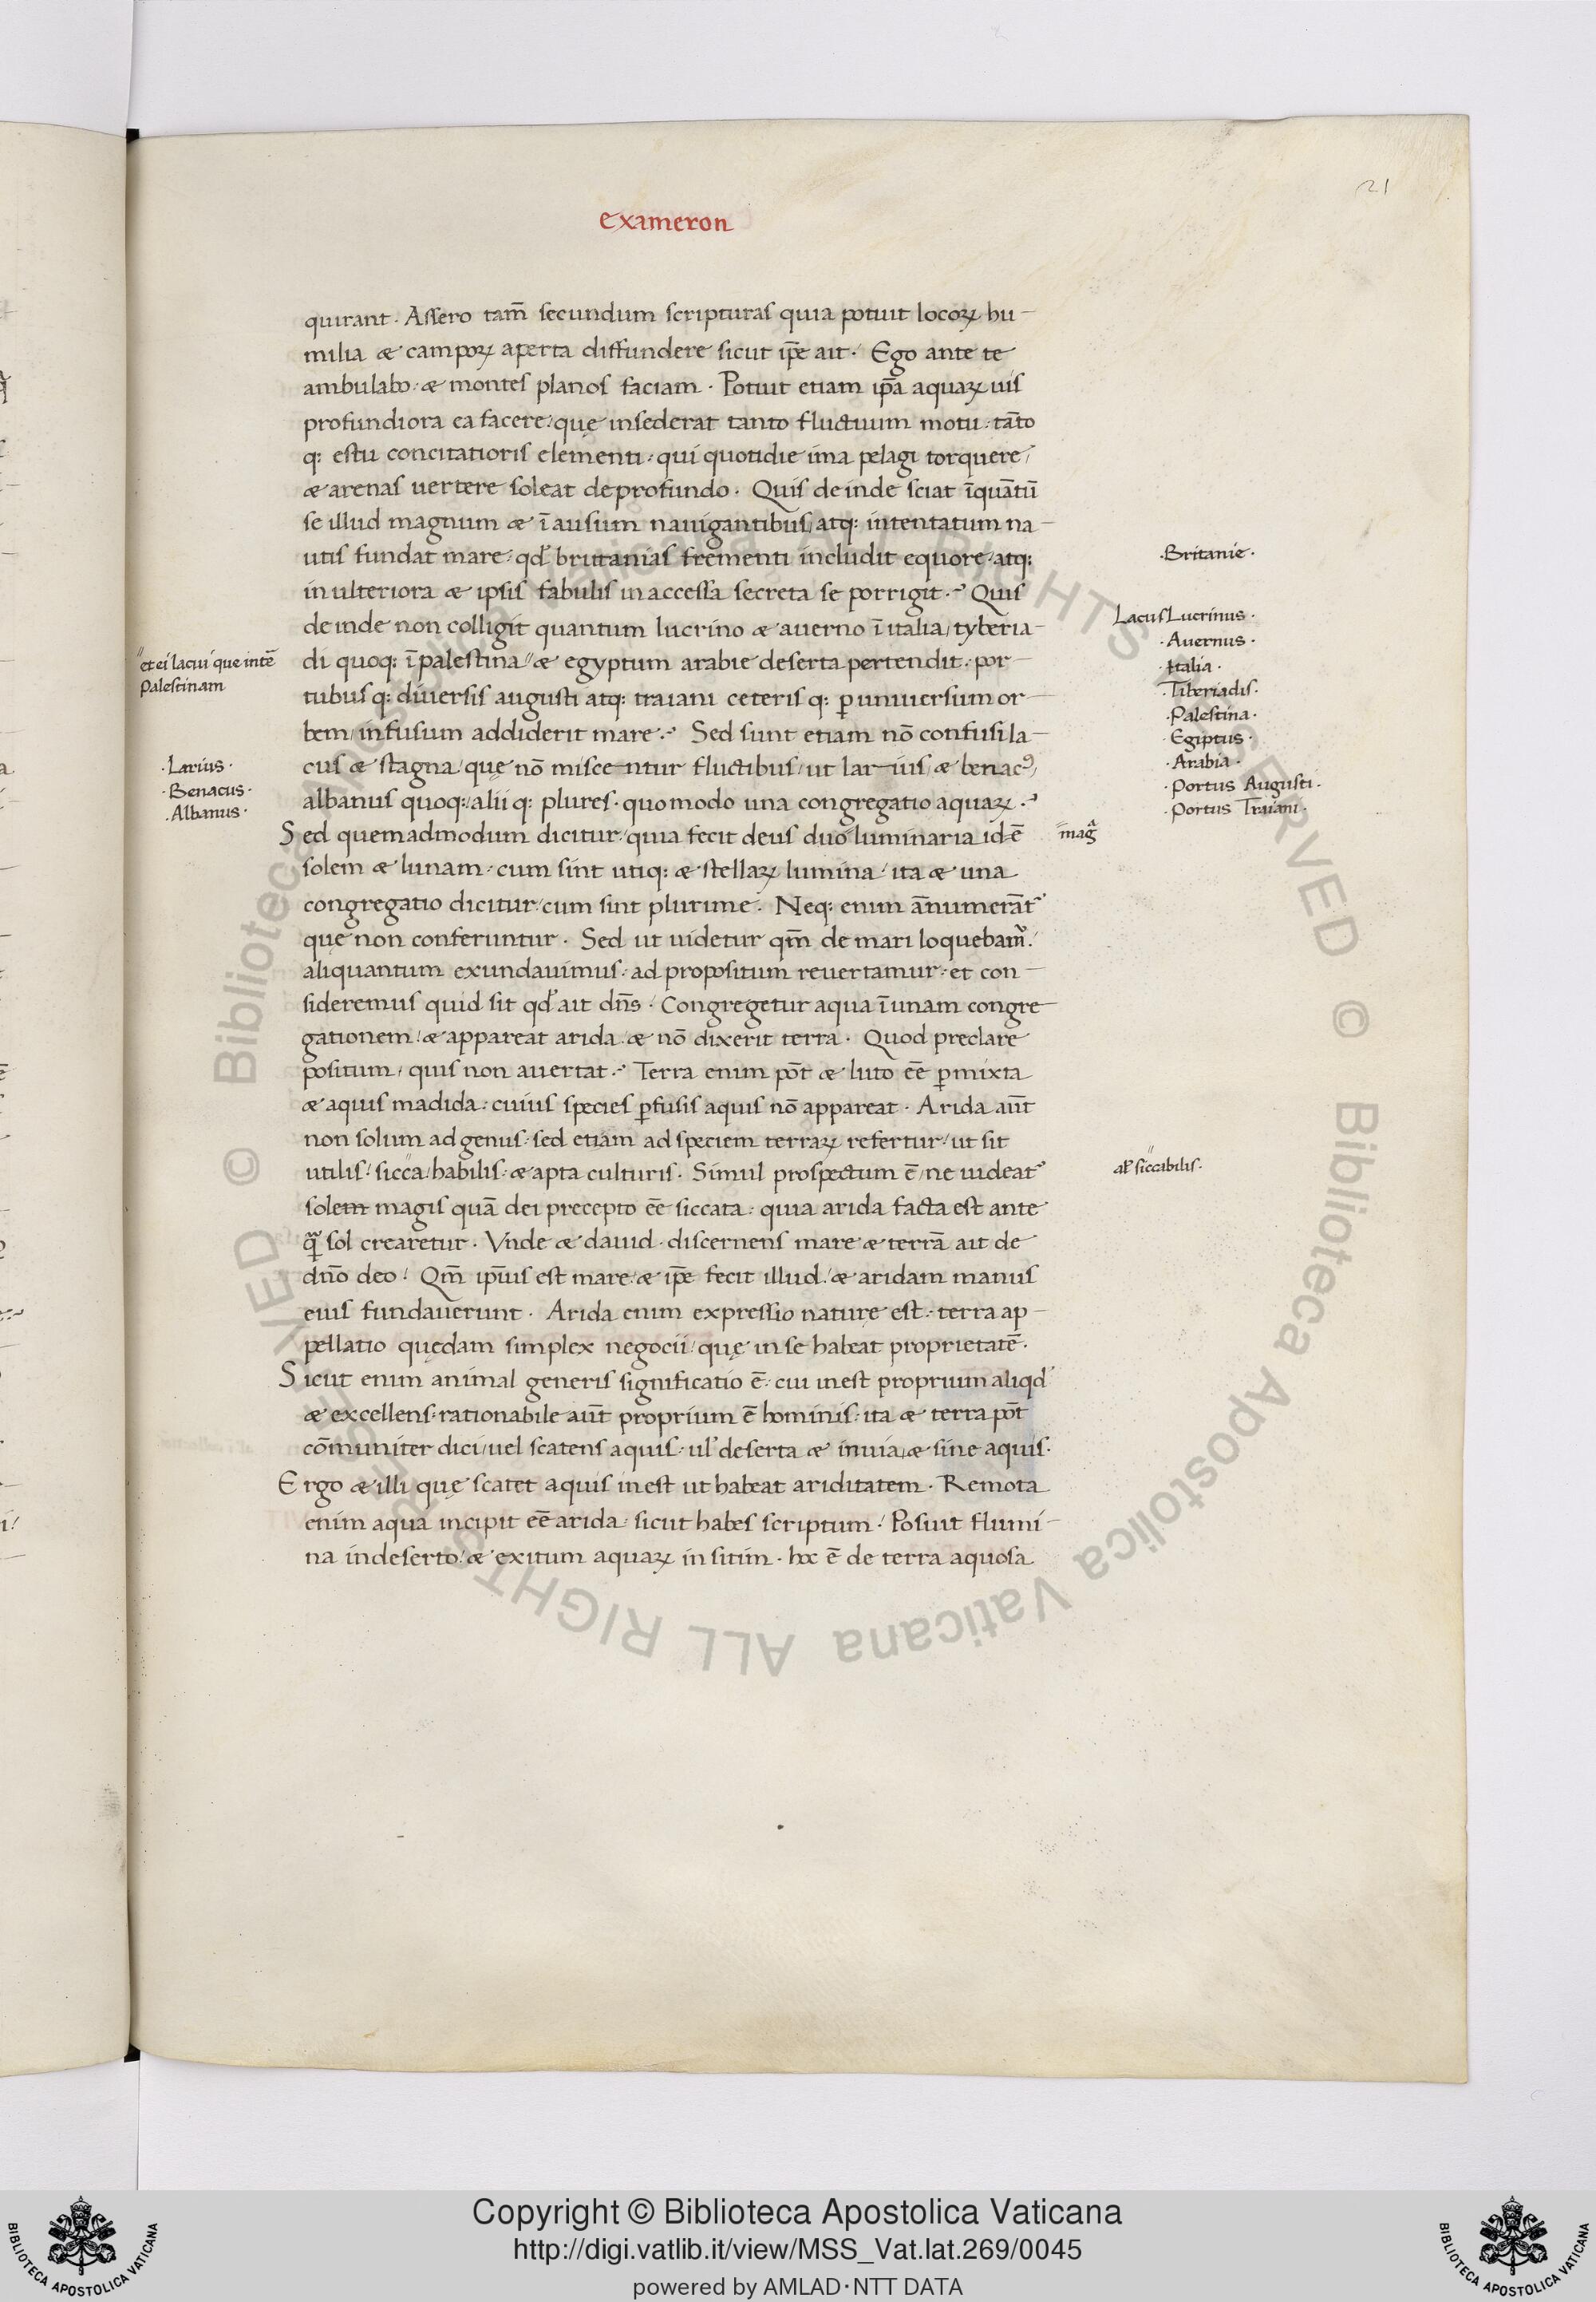 21
exameron
quirant. Assero tam̄ secundum scripturas quia potuit locoꝝ hu-
milia & campoꝝ aperta diffundere sicut ip̄e ait. Ego ante te
ambulabo: & montes planos faciam. Potuit etiam ip̄a aquaꝝ uis
profundiora ea facere/ quę insederat tanto fluctuum motu: tāto
q: estu concitatioris elementi: qui quotidie ima pelagi torquere/
& arenas uertere soleat de profundo. Quis deinde sciat īquātū
se illud magnum & īausum nauigantibus/ atq: intentatum na-
utis fundat mare: qd' brittanias frementi includit equore: atq:
in ulteriora & ipsis fabulis inaccessa secreta se porrigit. Quis
deinde non colligit quantum lucrino & auerno ī italia/ tyberia-
di quoq: ī palestina // & egyptum arabie deserta pertendit: por-
tubus q: diuersis augusti atq: traiani ceteris q: ꝑ uniuersum or-
bem/ infusum addiderit mare. Sed sunt etiam nō confusi la-
cus & stagna/ quę nō miscentur fluctibus/ ut larius/ & benacꝰ/
albanus quoq:/ alii q: plures. quomodo una congregatio aquaꝝ.
Sed quemadmodum dicitur/ quia fecit deus duo // luminaria id ē
solem & lunam: cum sint utiq: & stellaꝝ lumina/ ita & una
congregatio dicitur/ cum sint plurime. Neq: enim ānumerāt'
quę non conferuntur. Sed ut uidetur qm̄ de mari loquebam'./
aliquantum exundauimus: ad propositum reuertamur: et con-
sideremus quid sit qd' ait dn̄s. Congregetur aqua ī unam congre-
gationem/ & appareat arida: & nō dixerit terra. Quod preclare
positum, quis non auertat. Terra enim pōt & luto eē ꝑmixta
& aquis madida: cuius species ꝑfusis aquis nō appareat. Arida aūt
non solum ad genus: sed etiam ad speciem terraꝝ refertur/ ut sit
utilis/ sicca/ habilis: & apta culturis. Simul prospectum ē/ ne uideat'
solem magis quā dei precepto eē siccata: quia arida facta est ante
q̄ sol crearetur. Vnde & dauid. discernens mare & terrā ait de
dn̄o deo/ Qm̄ ip̄ius est mare/ & ip̄e fecit illud/ & aridam manus
eius fundauerunt. Arida enim expressio nature est: terra ap-
pellatio quędam simplex negocii/ quę in se habeat proprietatē.
Sicut enim animal generis significatio ē: cui inest proprium aliqd'
& excellens: rationabile aūt proprium ē hominis: ita & terra pōt
cōmuniter dici/ uel scatens aquis: ul' deserta & inuia, & sine aquis.
Ergo & illi quę scatet aquis inest ut habeat ariditatem. Remota
enim aqua incipit eē arida: sicut habes scriptum/ Posuit flumi-
na in deserto/ & exitum aquaꝝ in sitim. hoc ē de terra aquosa
// et ei lacui que intē
Palestinam
.Larius.
.Benacus.
.Albanus.
.Britanie.
Lacus Lucrinus.
.Auernus.
.Italia.
.Tiberiadis.
.Palestina.
.Egiptus.
.Arabia.
.Portus Augusti.
.Portus Traiani.
// magᵃ
al' siccabilis.
© Biblioteca Apostolica Vaticana ALL RIGHTS RESERVED © Biblioteca Apostolica Vaticana ALL RIGHTS RESERVED
Copyright © Biblioteca Apostolica Vaticana
http://digi.vatlib.it/view/MSS_Vat.lat.269/0045
powered by AMLAD·NTT DATA
BIBLIOTECA APOSTOLICA VATICANA
BIBLIOTECA APOSTOLICA VATICANA